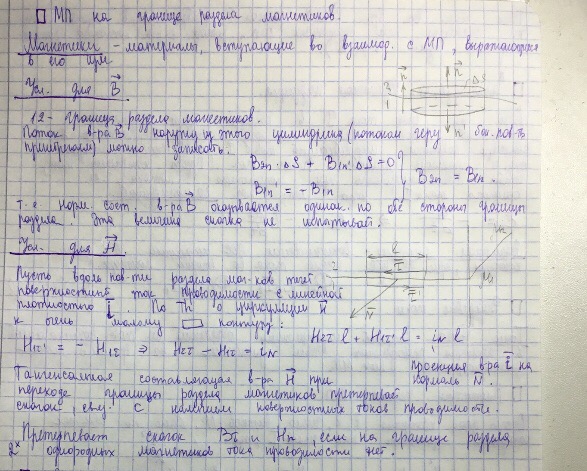 МП на границе раздела магнетиков.
Магнетики - материалы, вступающие во взаимод. с МП, выражающееся
в его изм.
Усл. для B⃗
1,2 - граница раздела магнетиков.
Поток в-ра B⃗ наружу из этого цилиндрика (потоком через бок. пов-ть
пренебрегаем) можно записать:
B₂ₙ · ΔS + B₁ₙ' ΔS = 0
B₁ₙ' = - B₁ₙ
B₂ₙ = B₁ₙ.
т.е. норм. сост. в-ра B⃗ оказывается одинак. по обе стороны границы
раздела. Эта величина скачка не испытывает.
Усл. для H⃗
Пусть вдоль пов-ти раздела маг-ков течёт
поверхностный ток проводимости с линейной
плотностью i⃗. По Th о циркуляции H⃗
к очень малому контуру:
H₂τ l + H₁τ' l = i_N l
H₁τ' = - H₁τ ⇒ H₂τ - H₁τ = i_N
проекция в-ра i⃗ на
нормаль N⃗.
Тангенсальная составляющая в-ра H⃗ при
переходе границы раздела магнетиков претерпевает
скачок, связ. с наличием поверхностных токов проводимости.
Претерпевает скачок Bτ и Hₙ, если на границе раздела
2ˣ однородных магнетиков тока проводимости нет.